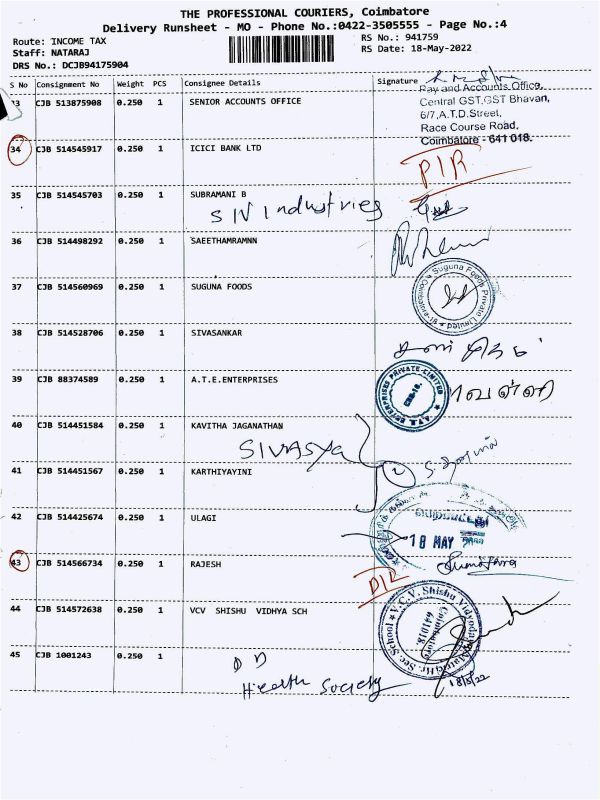 THE PROFESSIONAL COURIERS, Coimbatore
Delivery Runsheet - MO - Phone No.:0422-3505555 - Page No.:4
Route: INCOME TAX
Staff: NATARAJ
DRS No.: DCJB94175904
RS No.: 941759
RS Date: 18-May-2022
S No Consignment No Weight PCS Consignee Details Signature
33 CJB 513875908 0.250 1 SENIOR ACCOUNTS OFFICE
Pay and Accounts Office,
Central GST,GST Bhavan,
6/7,A.T.D.Street,
Race Course Road,
Coimbatore - 641 018.
34 CJB 514545917 0.250 1 ICICI BANK LTD
35 CJB 514545703 0.250 1 SUBRAMANI B
SIV Industries
36 CJB 514498292 0.250 1 SAEETHAMRAMNN
37 CJB 514560969 0.250 1 SUGUNA FOODS
Suguna Foods Private Limited
38 CJB 514528706 0.250 1 SIVASANKAR
39 CJB 88374589 0.250 1 A.T.E.ENTERPRISES
A.T.E. ENTERPRISES PRIVATE LIMITED
40 CJB 514451584 0.250 1 KAVITHA JAGANATHAN
SIVASYA
41 CJB 514451567 0.250 1 KARTHIYAYINI
42 CJB 514425674 0.250 1 ULAGI
18 MAY
43 CJB 514566734 0.250 1 RAJESH
44 CJB 514572638 0.250 1 VCV SHISHU VIDHYA SCH
V.C.V. Shishu Vidyodaya
Hr. Sec. School
Coimbatore
641018.
45 CJB 1001243 0.250 1
D D
Health Society
18/5/22